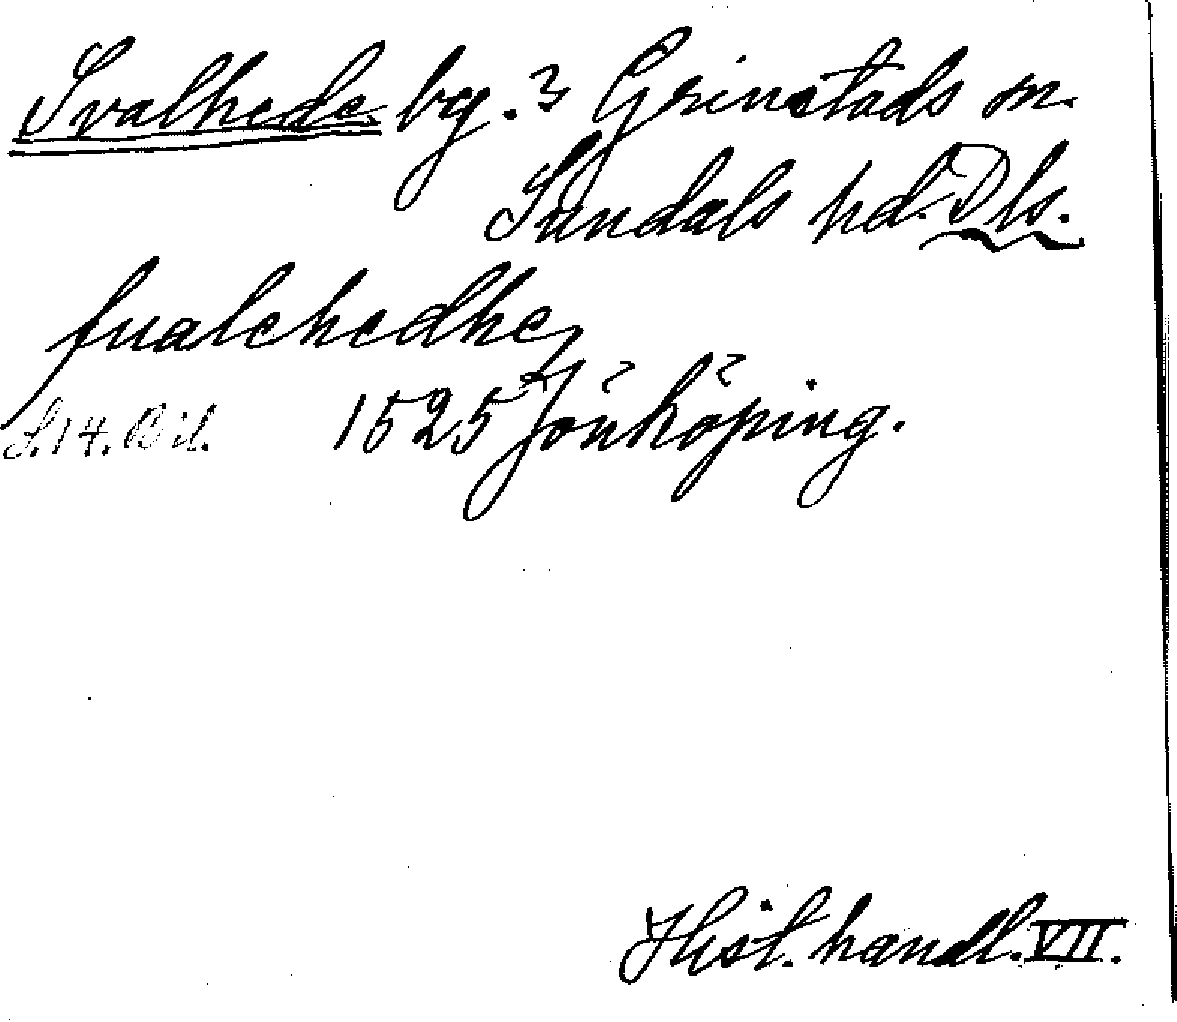 Svalhede bg. 3 Grinstads sn.
Sundals hd. Dls.
sualehedhe,
S. 14. Bil. 1525 Jönköping.
Hist. handl. VII.